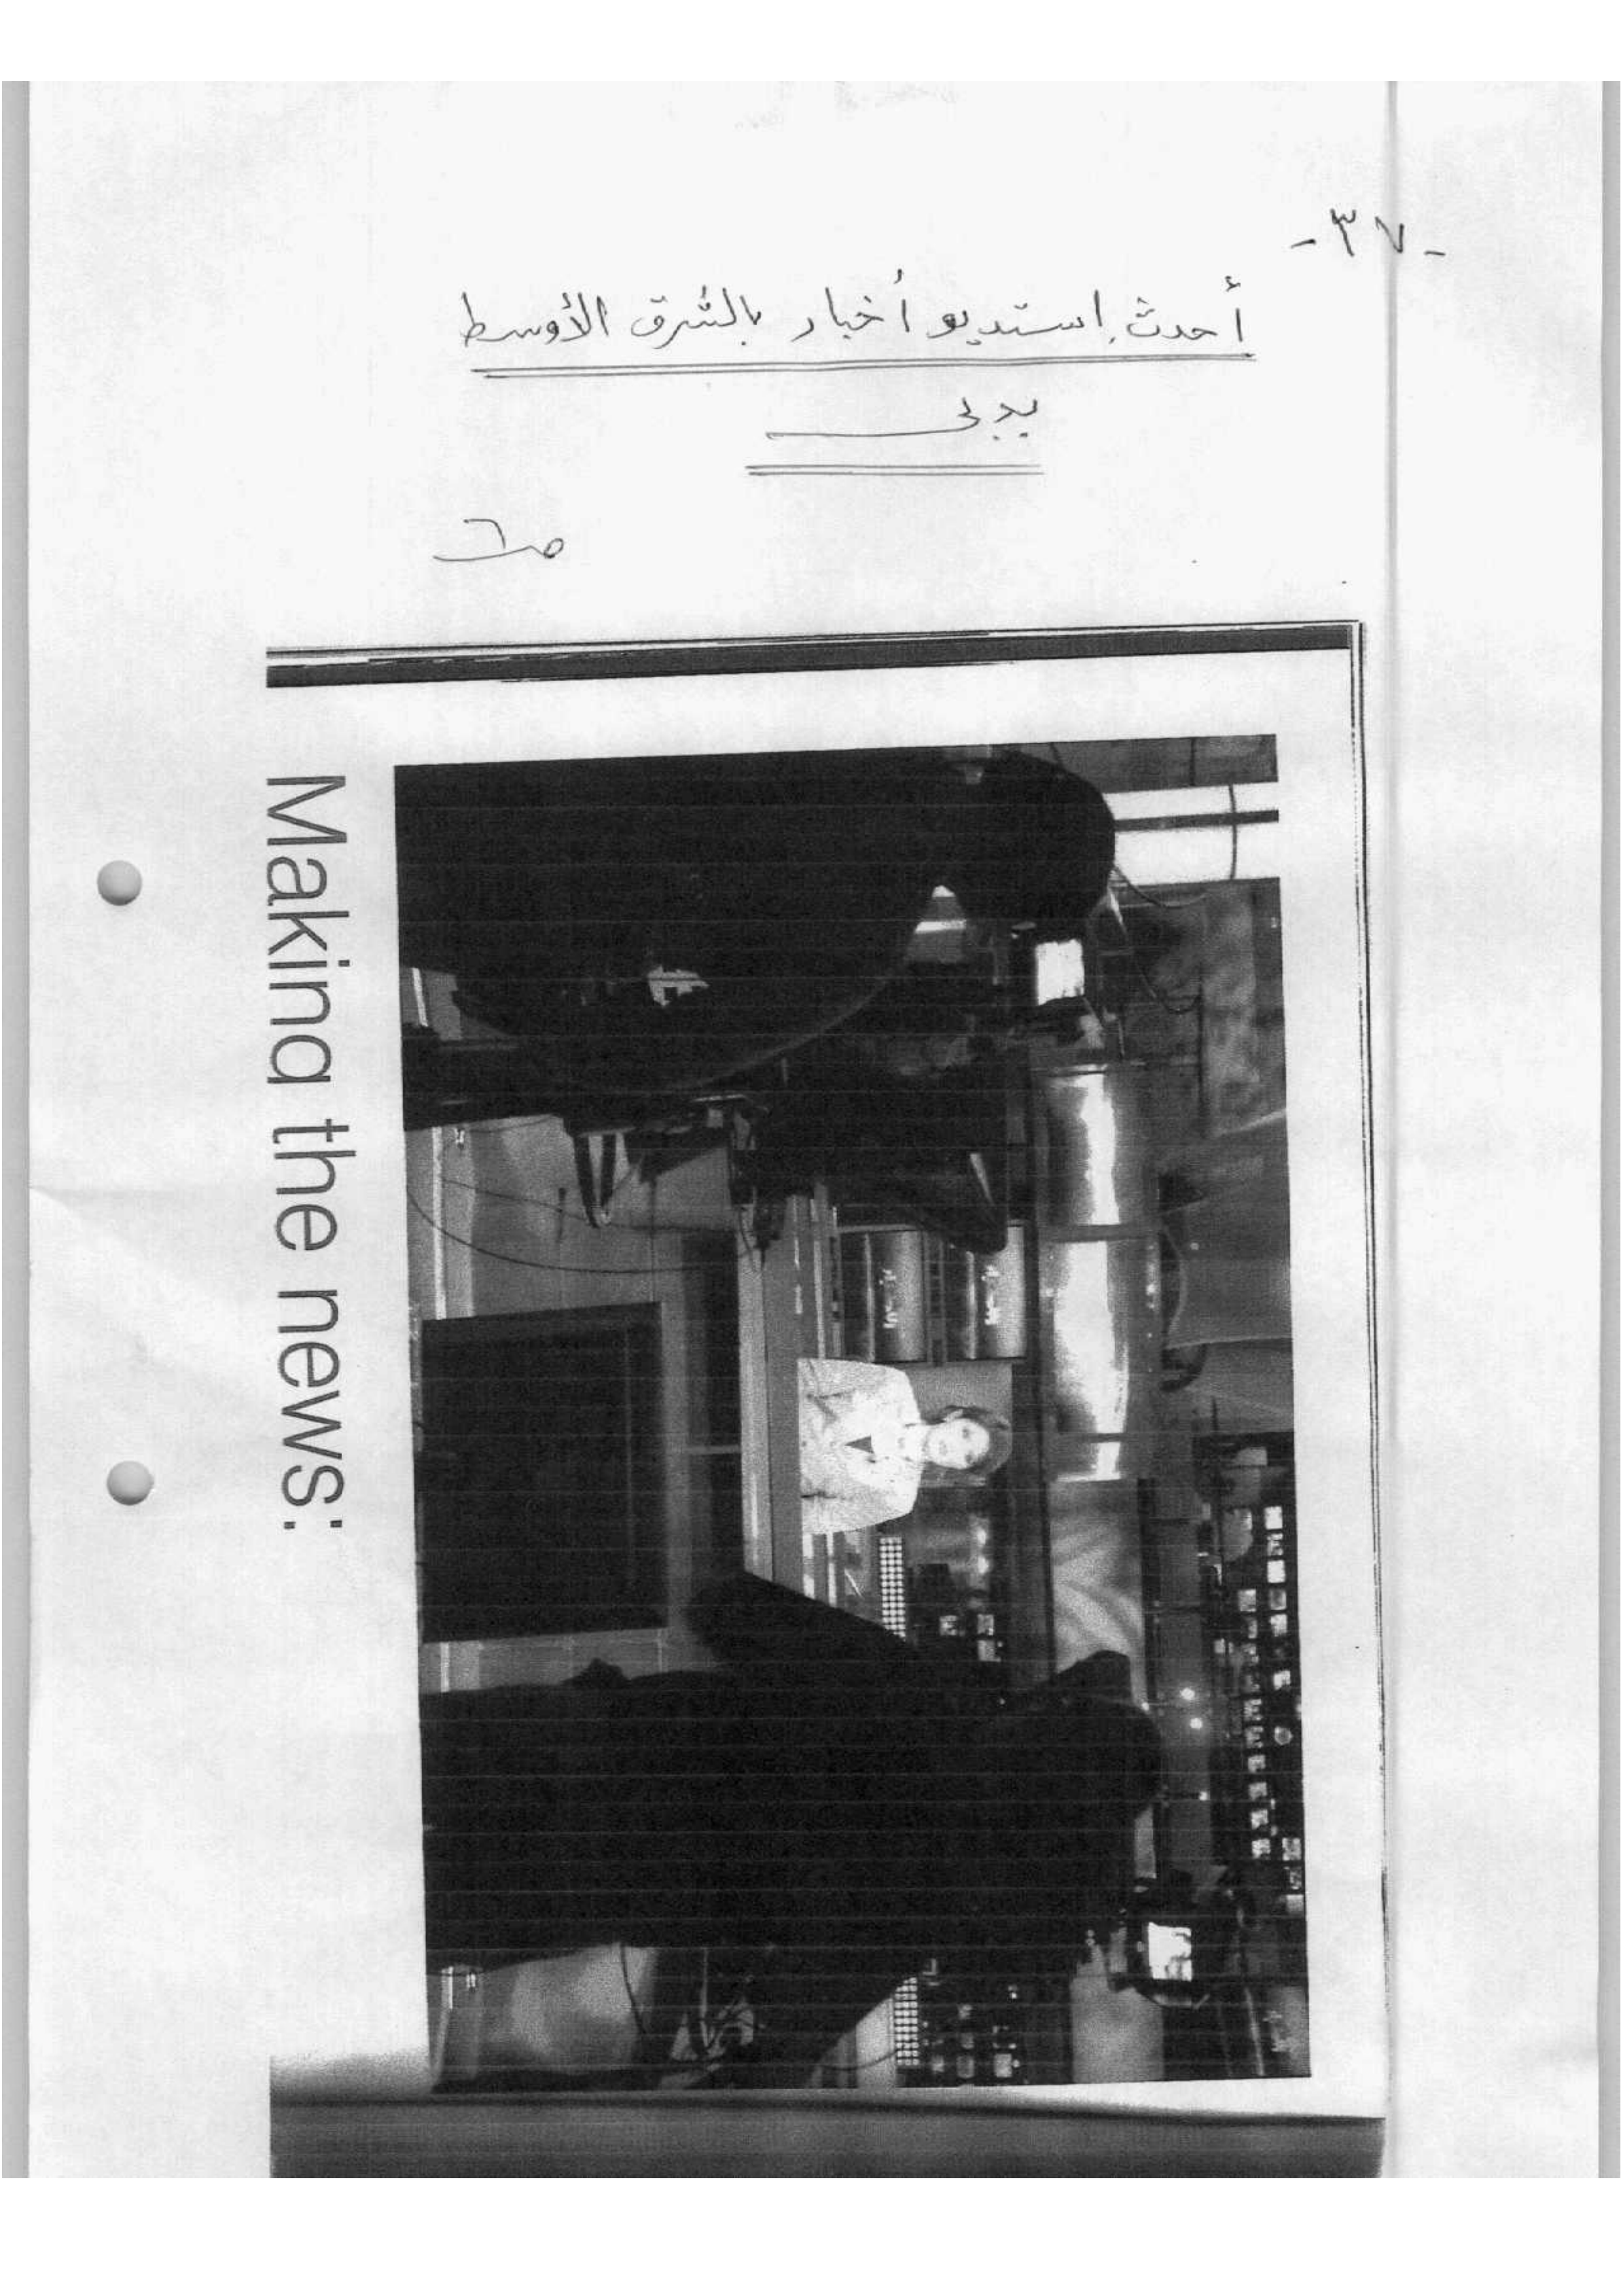 -٣٧-
أحدث استديو أخبار بالشرق الأوسط
بدبى
ص٦
Making the news: